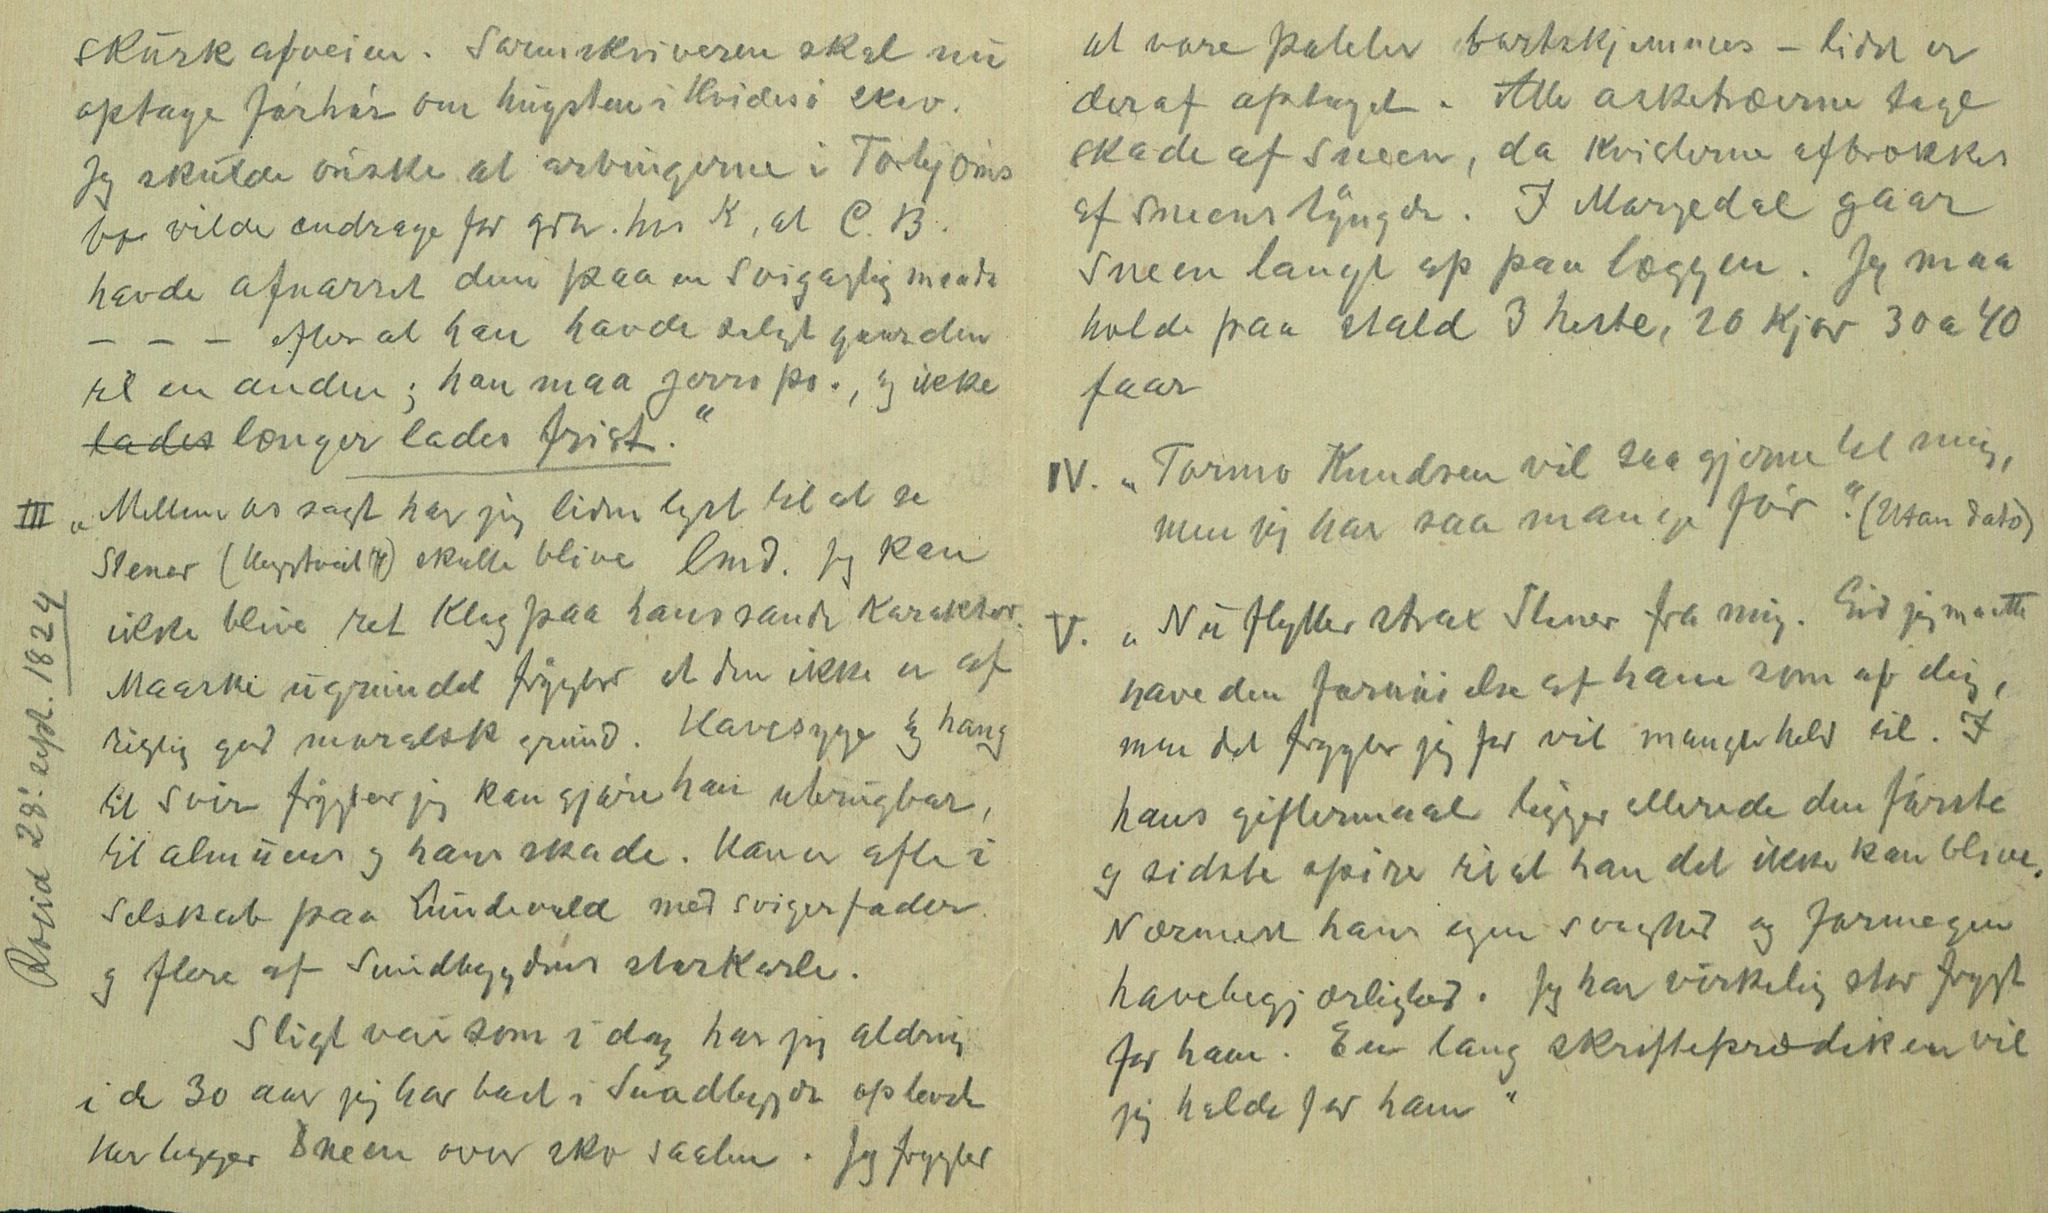 skurk afveien. Sorenskriveren skal nu
optage forhör om hugsten i Hvidesö skov.
Jeg skulde önske at arvingerne i Torbjörns
bo vilde andrage for hos K, at C. B.
havde afnarret dem paa en svigagtig maade
– – – efter at han havde solgt gaarden
til en anden; han maa , og ikke
lades længer lades frist."
III „Mellem os sagt har jeg liden lyst til at se
Stener skulle blive lmd. Jeg kan
ikke blive ret klog paa hans sande karakter.
Maaske ugrundet frygter at den ikke er af
rigtig god moralsk grund. Havesyge og hang
til svir frygter jeg kan gjöre han ubrugbar,
til almuens og hans skade. Han er ofte i
selskab paa Lundevald med svigerfader
og flere af Sundbygdens storkarle.
Sligt veir som i dag har jeg aldrig
i de 30 aar jeg har boet i Sundbygda oplevet
Her ligger sneen over sko saalen. Jeg frygter
Roeid 28. sept. 1824
at vore poteter bortskjemmes – lidet er
deraf optaget. Alle asketræerne tage
skade af sneen, da kvisterne afbrækkes
af sneens tyngde. I Morgedal gaar
sneen langt op paa læggen. Jeg maa
holde paa stald 3 heste, 20 kjör 30 a 40
faar
IV. „Tormo Knudsen vil saa gjerne til mig,
men jeg har saa mange för". (Utan dato)
V. „Nu flytter strax Stener fra mig. Gid jeg maatte
have den fornöielse af ham som af dig,
men det frygter jeg for vil mangle held til. I
hans giftermaal ligger allerede den förste
og sidste spire til at han det ikke kan blive.
Nærmest hans egen svaghed og formegen
havebegjærlighed. Jeg har virkelig stor frygt
for ham. En lang skrifteprædiken vil
jeg holde for ham"